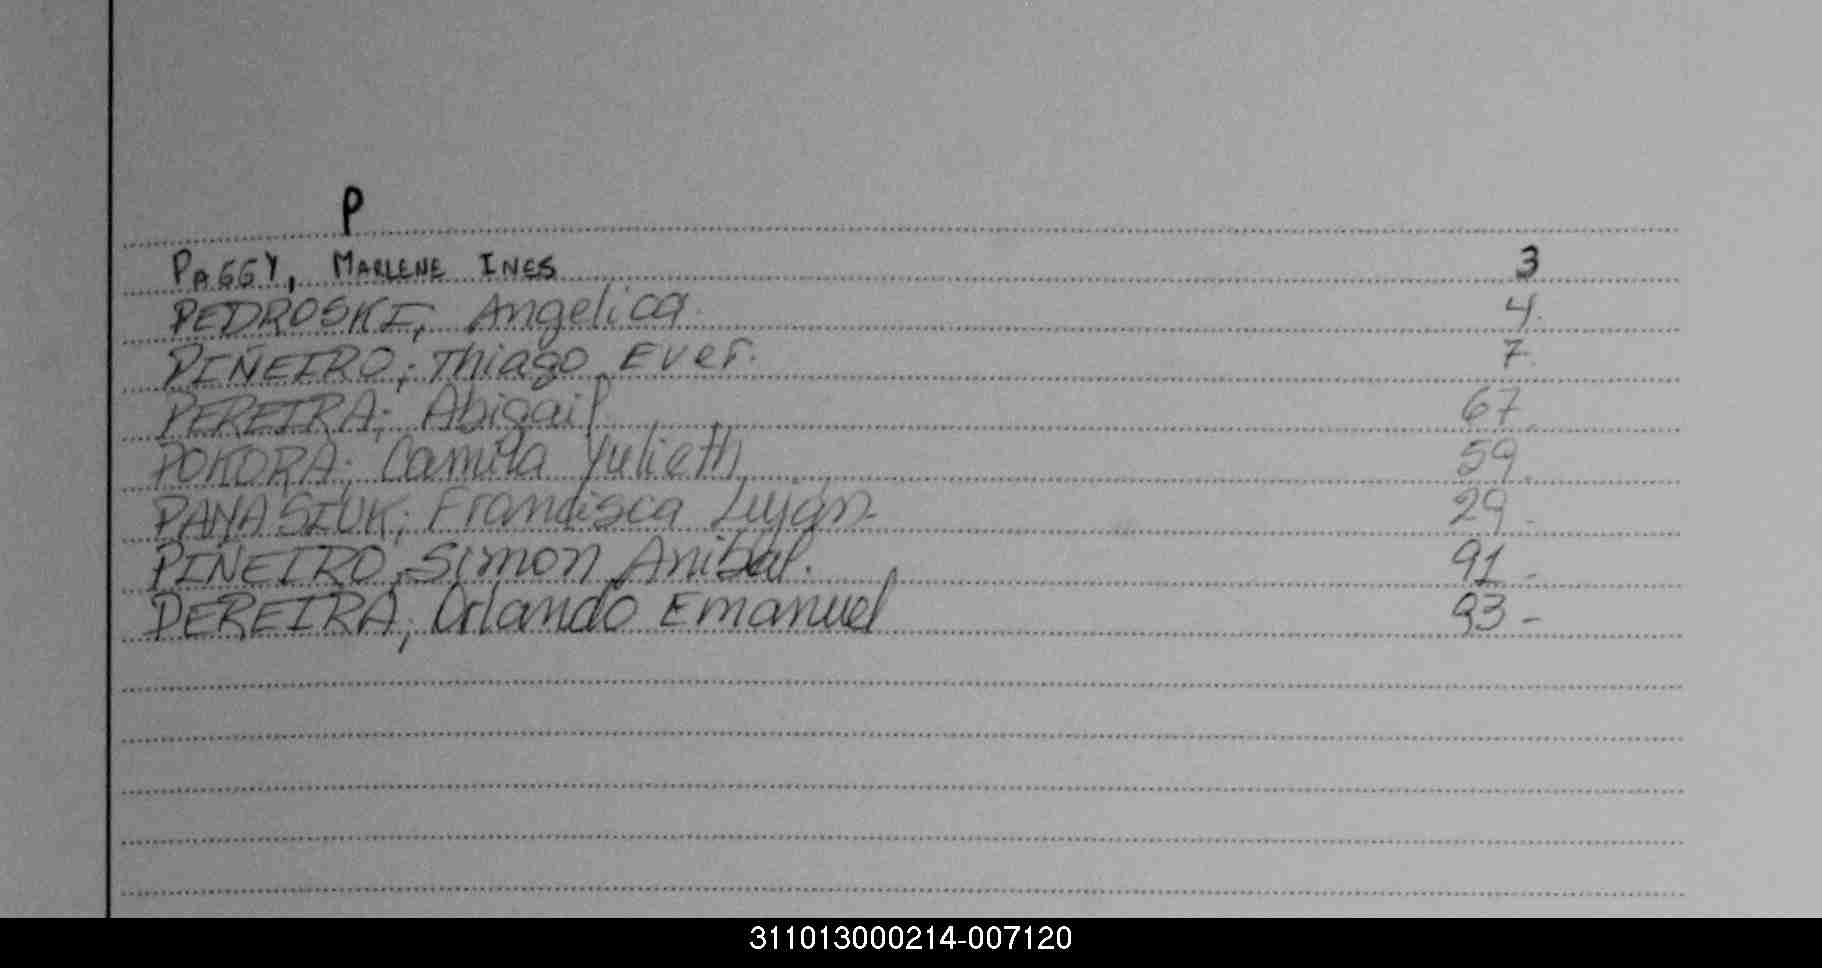 P
PAGGY, MARLENE INES 3
PEDROSKI, Angelica. 4.
PIÑEIRO; Thiago Ever. 7.
PEREIRA; Abigail 67.
POKORA; Camila Yulieth 59.
PANASIUK; Francisca Luján- 29.
PIÑEIRO, Simon Anibal. 91-
PEREIRA; Orlando Emanuel 93-
311013000214-007120